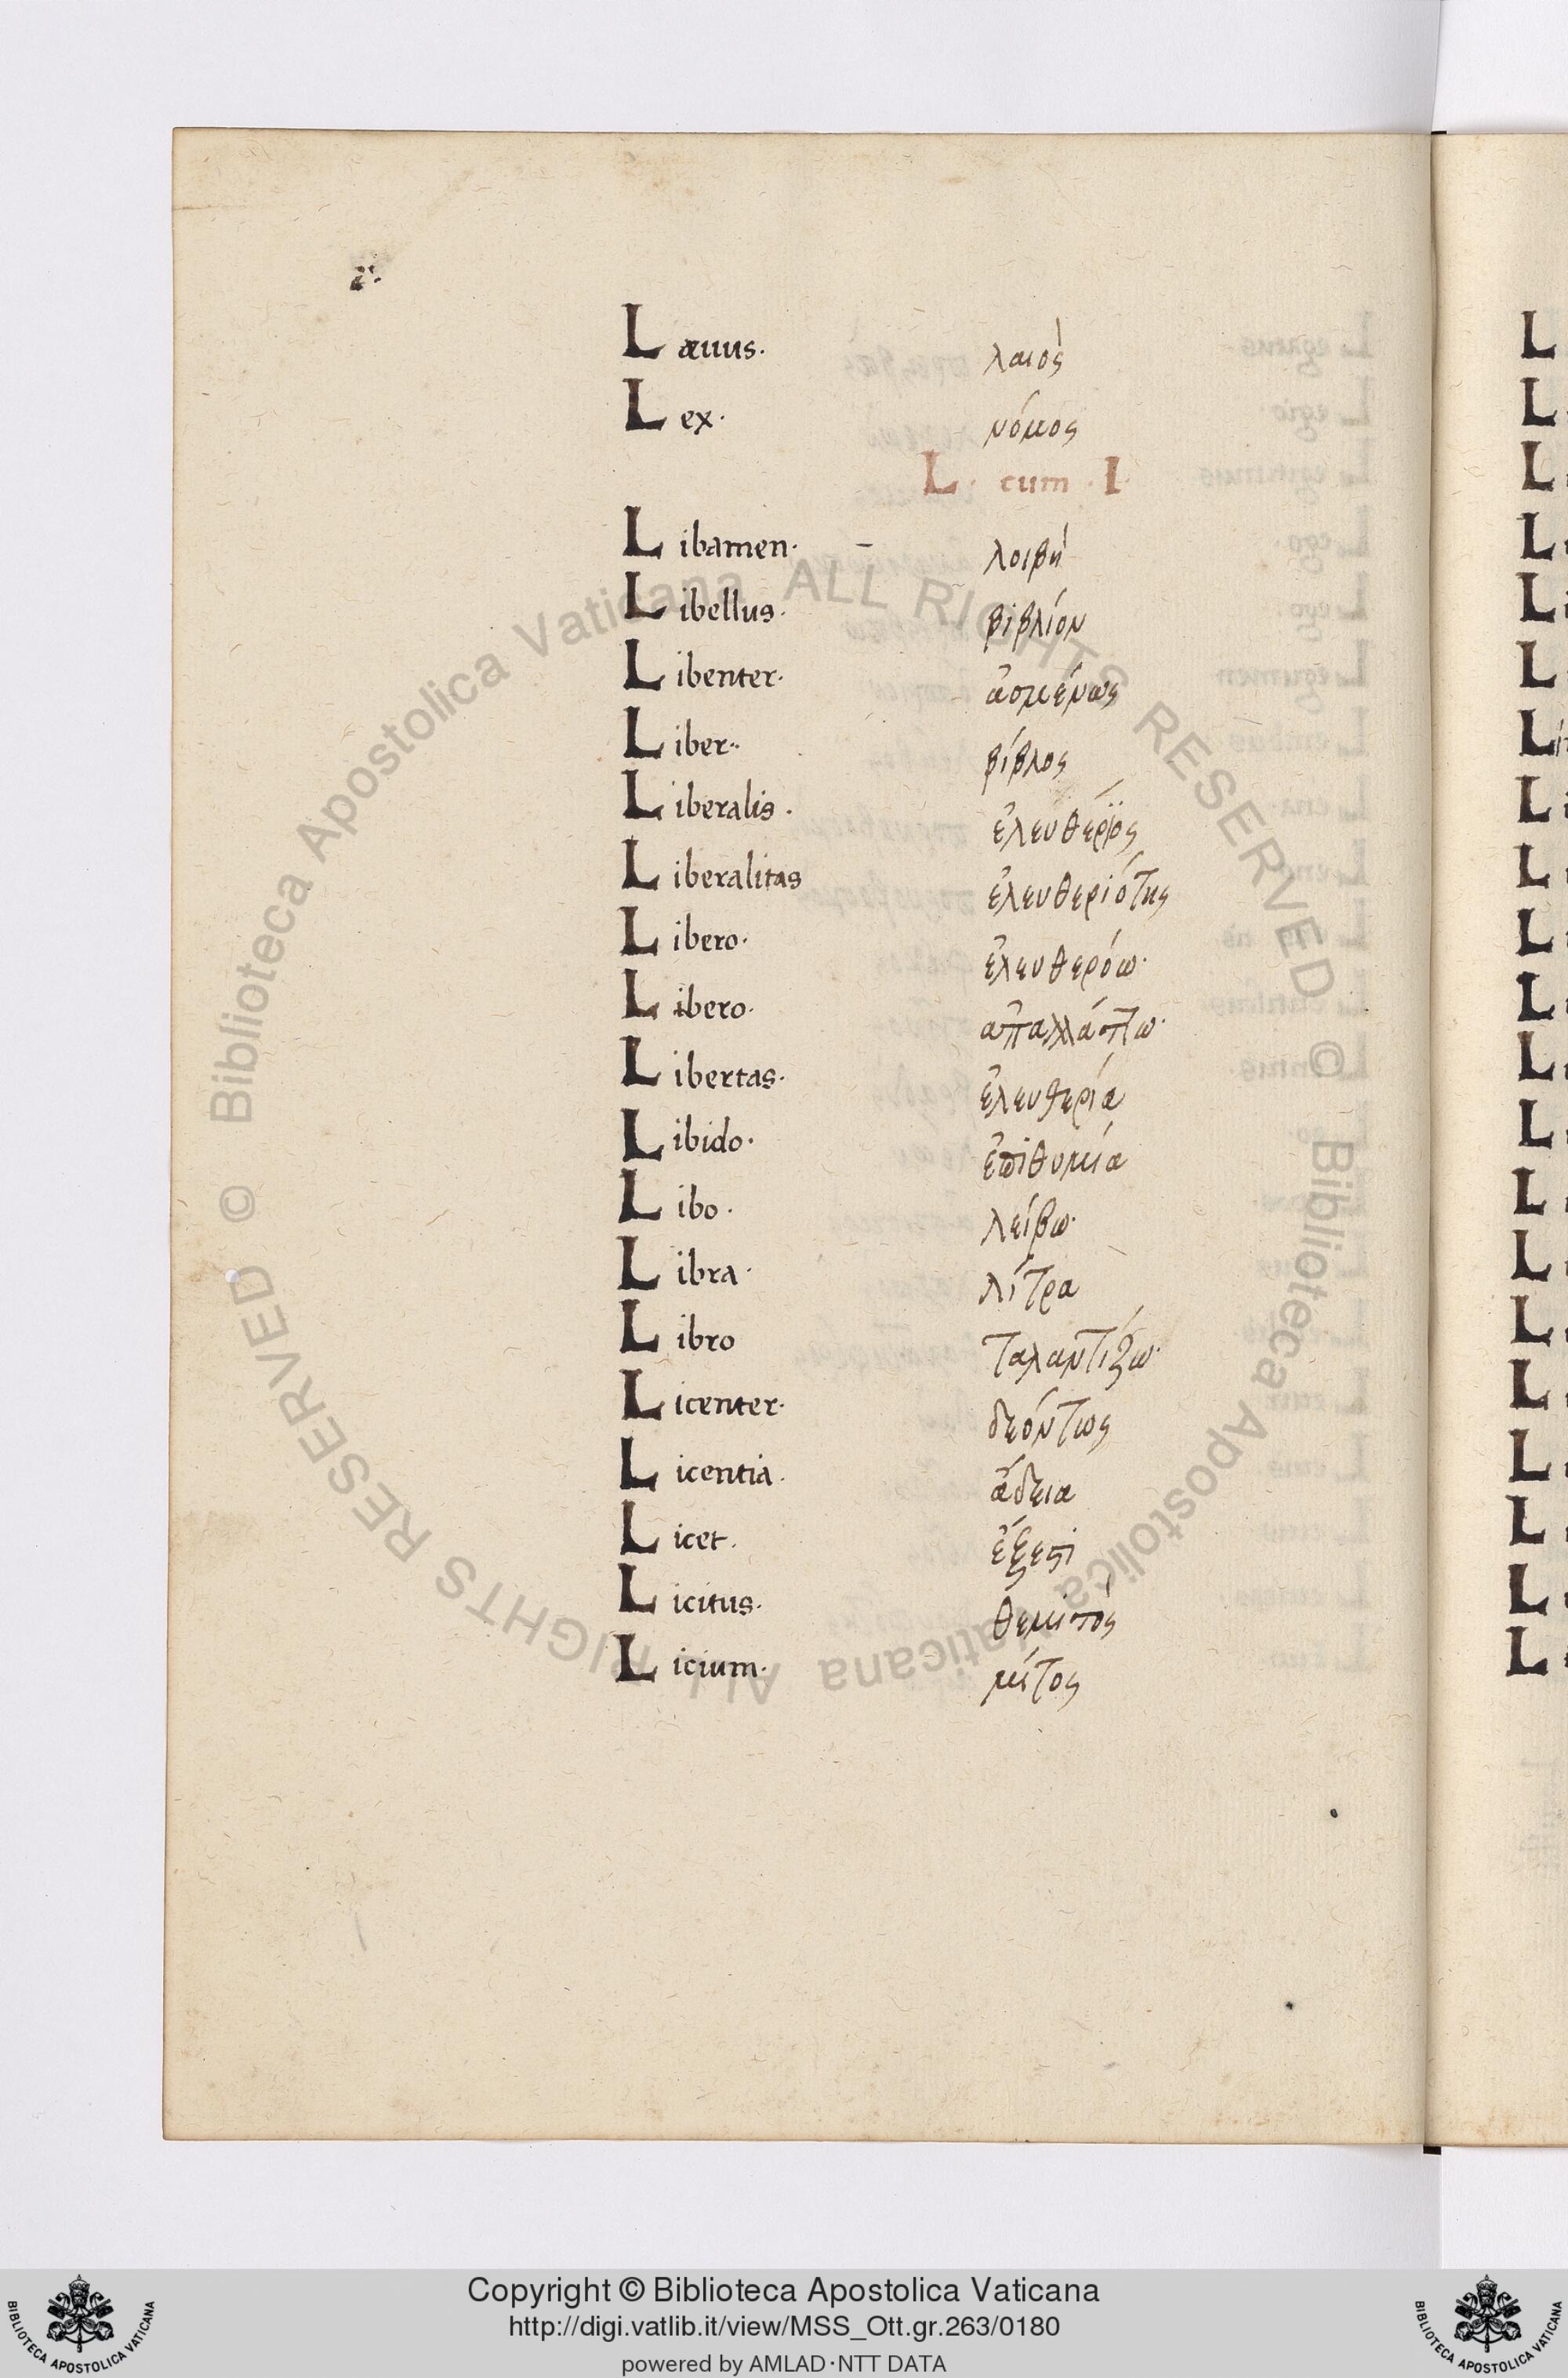 Læuus. λαιὸς
Lex. νόμος
L. cum. I.
Libamen. λοιβὴ
Libellus. βιβλίον
Libenter. ἀσμένως
Liber. βίβλος
Liberalis. ἐλευθέριος
Liberalitas ἐλευθεριότης
Libero. ἐλευθερόω.
Libero. ἀπαλλάττω.
Libertas. ἐλευθερία
Libido. ἐπιθυμία
Libo. λείβω.
Libra. λίτρα
Libro ταλαντίζω.
Licenter. δεόντως
Licentia. ἄδεια
Licet. ἔξεστι
Licitus. θεμιτὸς
Licium. μίτος
Copyright © Biblioteca Apostolica Vaticana
http://digi.vatlib.it/view/MSS_Ott.gr.263/0180
powered by AMLAD·NTT DATA
BIBLIOTECA APOSTOLICA VATICANA
BIBLIOTECA APOSTOLICA VATICANA
© Biblioteca Apostolica Vaticana ALL RIGHTS RESERVED
© Biblioteca Apostolica Vaticana ALL RIGHTS RESERVED